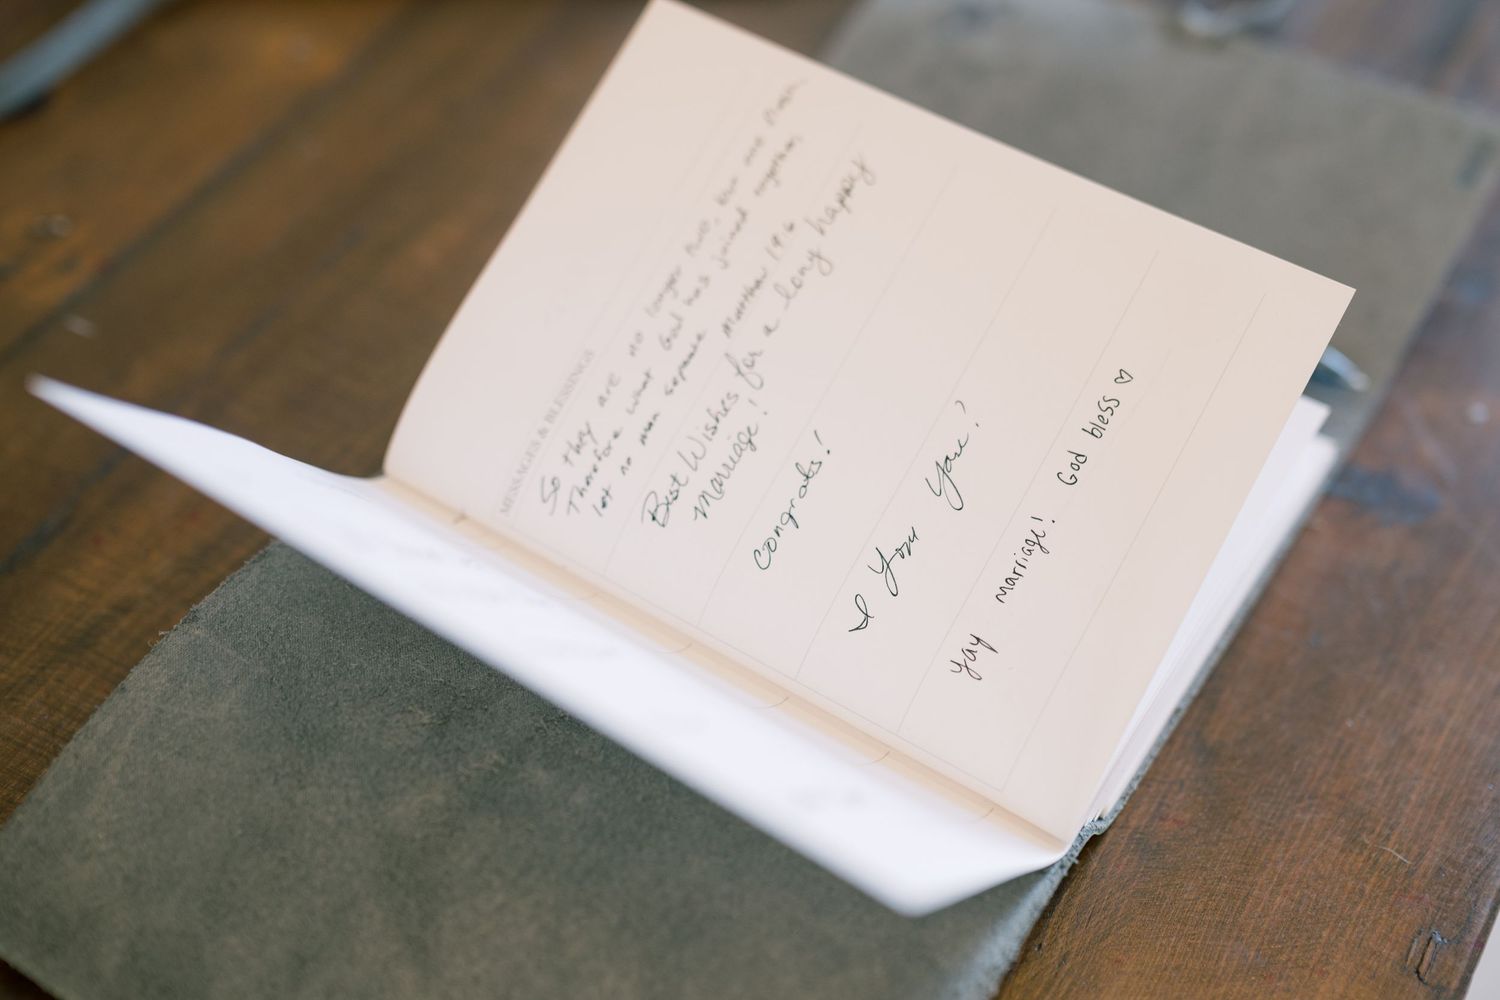 MESSAGES & BLESSINGS
So they are no longer two, but one flesh
Therefore what God has joined together,
let no man separate Matthew 19:6
Best Wishes for a long happy
Marriage!
Congrats!
I You You!
yay marriage! God bless ♡